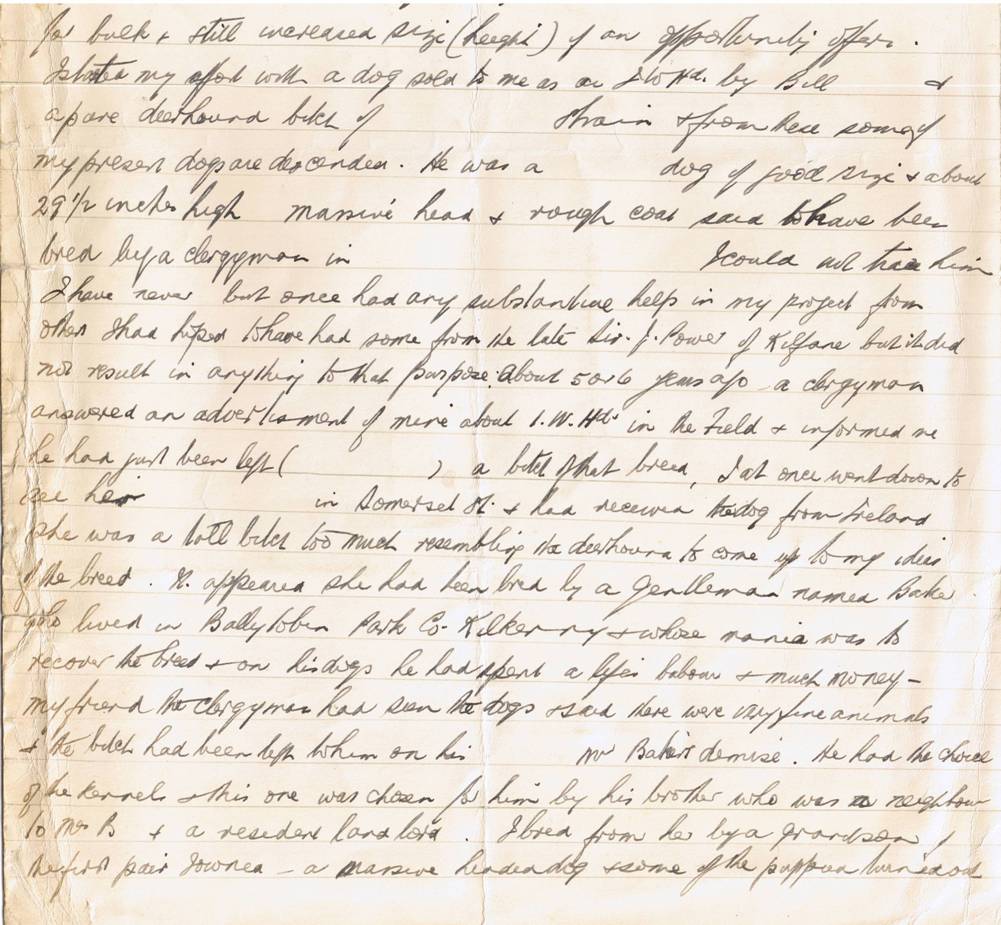 for bulk & still increased size (height) if an opportunity offers.
I started my effort with a dog sold to me as an I W Hd. by Bill &
a pure deerhound bitch of strain & from these some of
my present dogs are descended. He was a dog of good size & about
29 1/2 inches high massive head & rough coat said to have been
bred by a clergyman in I could not trace him
I have never but once had any substantive help in my project from
others I had hoped to have had some from the late Sir. J. Power of Kilfane but it did
not result in anything to that purpose. About 5 or 6 years ago a clergyman
answered an advertisment of mine about I. W. Hds in the Field & informed me
he had just been left ( ) a bitch of that breed, I at once went down to
see her in Somerset St. & had received the dog from Ireland
She was a tall bitch too much resembling the deerhound to come up to my idea
of the breed. It appeared she had been bred by a Gentleman named Baker.
who lived in Ballytobin Park Co. Kilkenny & whose mania was to
recover the breed & on his dogs he had spent a life's labour & much money –
my friend the clergyman had seen the dogs & said there were very fine animals
& the bitch had been left to him on his Mr Baker's demise. He had the choice
of the kennels & this one was chosen for him by his brother who was a neighbour
to Mr B & a resident land lord. I bred from her by a grandson of
the first pair I owned – a massive headed dog & some of the puppies turned out